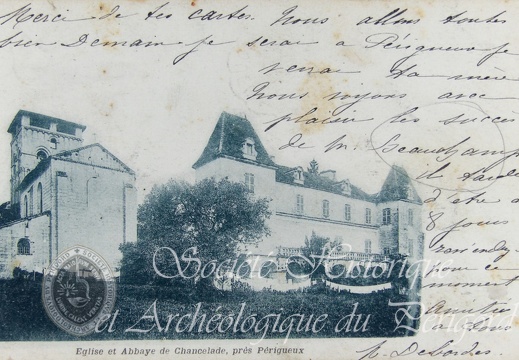 Merci de tes cartes. Nous allons toutes
bien Demain je serai à Périgueux je
verrai ta mère
Nous voyons avec
plaisir les succès
de Mr Beauchamp
il
d'être à
8 jours
pour ce
moment
Société Historique
et Archéologique du Périgord
Eglise et Abbaye de Chancelade, près Périgueux